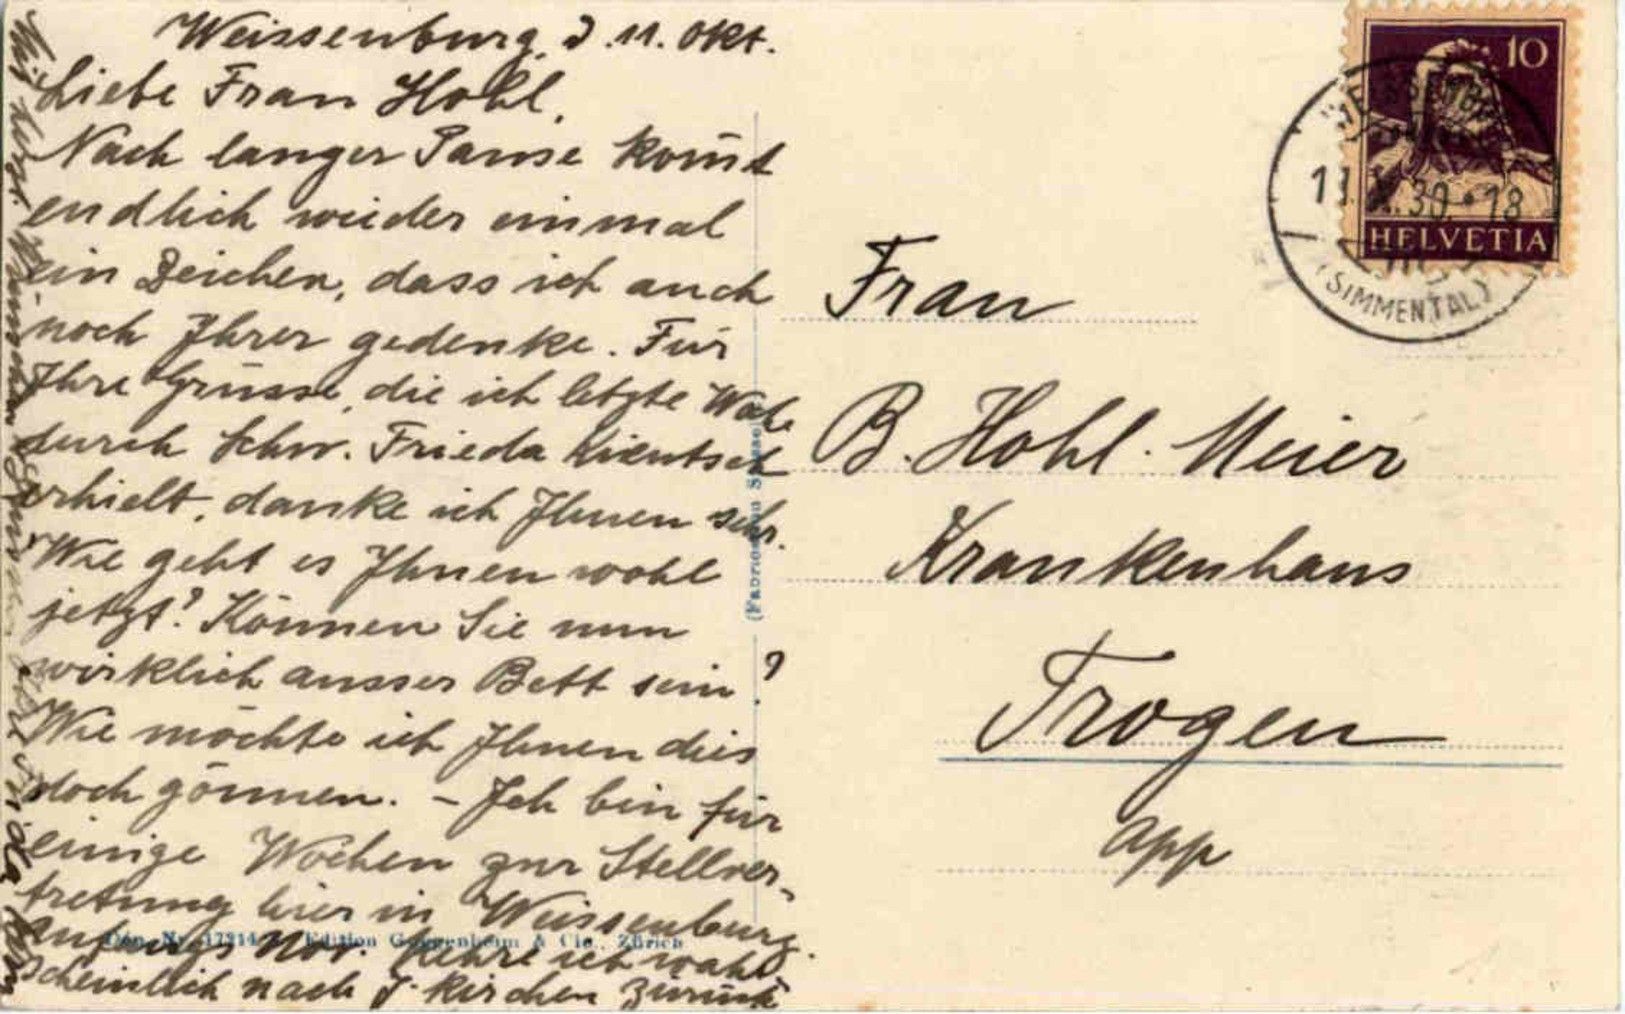 Weissenburg, d. 11. Okt.
Liebe Frau Hohl,
Nach langer Pause kom̄t
endlich weider einmal
ein Zeichen, dass ich auch
noch Ihrer gedenke. Für
Ihre Grüsse, die ich letzte Woche
durch Schw. Frieda Kientsch
erhielt, danke ich Ihnen sehr.
Wie geht es Ihnen wohl
jetzt? Können Sie nun
wirklich ausser Bett sein?
Wie möchte ich Ihnen dies
doch gönnen. – Ich bin für
einige Wochen zur Stellver-
tretung hier in Weissenburg.
Anfangs Nov. kehre ich wahr-
scheinlich nach J. kirchen zurück
Mit herzl.
Frieda
Frau
B. Hohl-Meier
Krankenhaus
Trogen
App
10
HELVETIA
WEISSENBURG
11.X.30.18
(SIMMENTAL)
Edition Guggenheim & Cie., Zürich